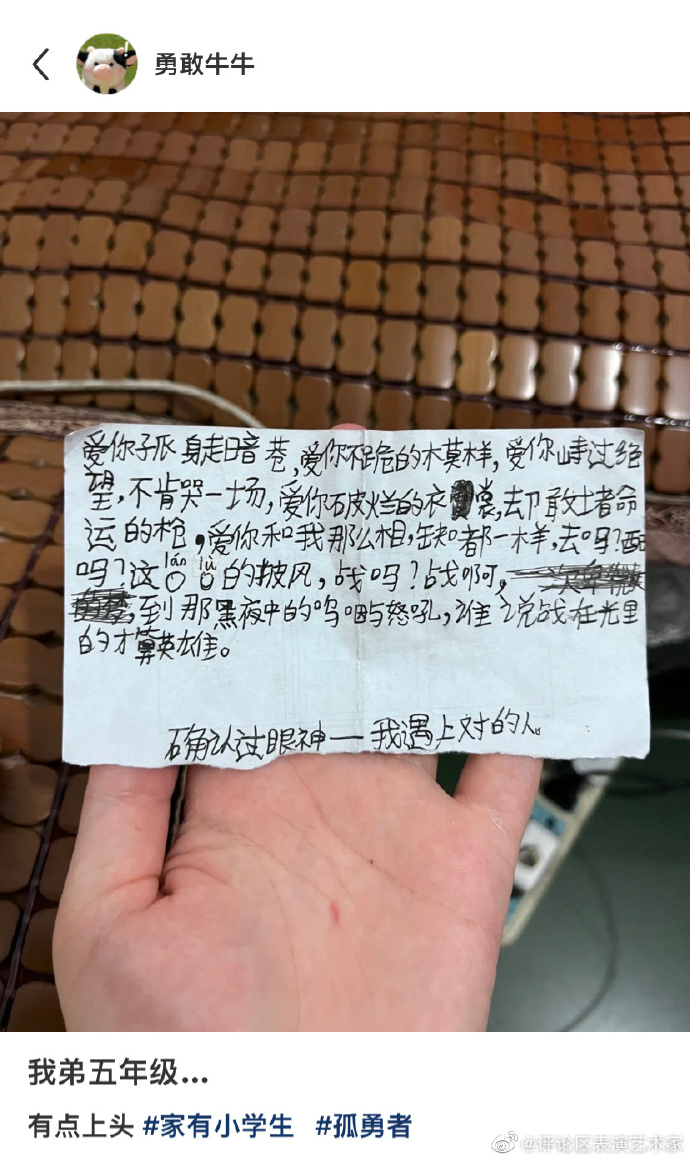 勇敢牛牛
爱你孤身走暗巷,爱你不跪的模样,爱你峙过绝
望,不肯哭一场,爱你破烂的衣裳,去卩敢堵命
运的枪,爱你和我那么相,缺都一样,去吗?配
吗?这○(lán)○(lǚ)的披风,战吗?战啊,
到那黑夜中的呜咽与怒吼,谁说战在光里
的才算英雄。
确认过眼神一我遇上对的人。
我弟五年级...
有点上头 #家有小学生 #孤勇者
@评论区表演艺术家